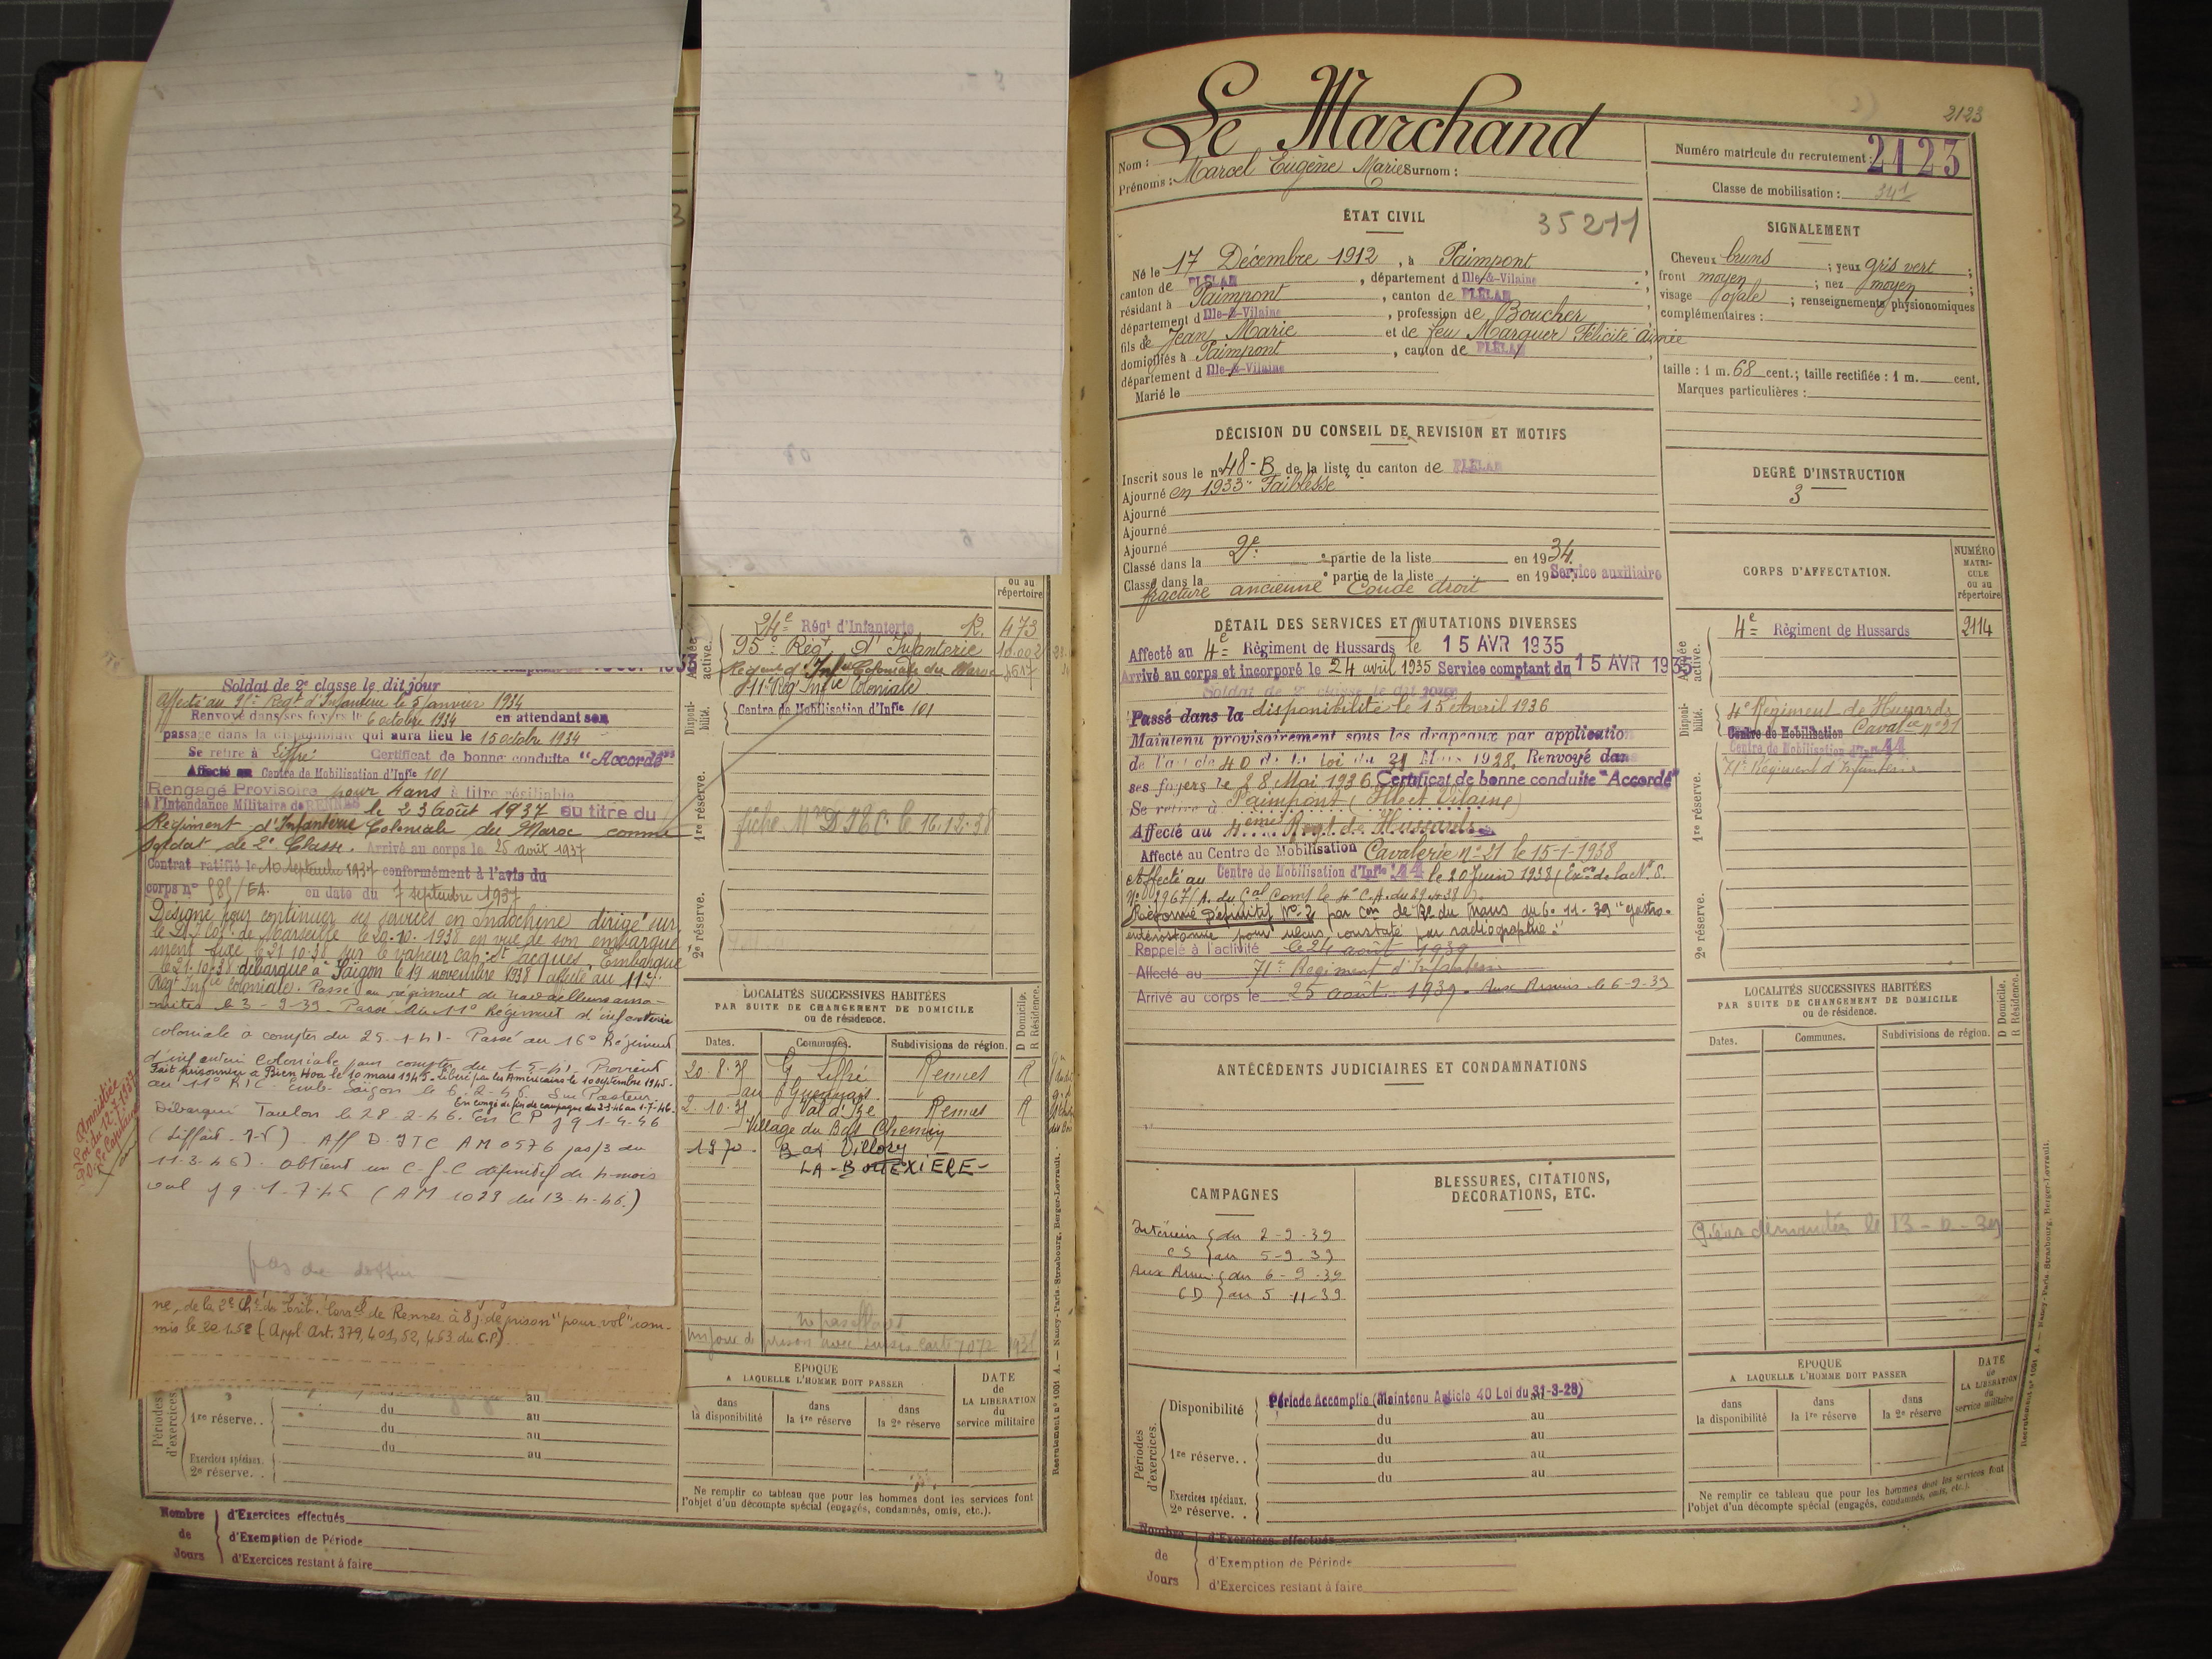 ou au
répertoire
Armée active.
24e Régt d'Infanterie R. 473
95e Régt d'Infanterie 10.002
Régiment d'Infie Coloniale du Maroc 4517
11e Rég. Infie Coloniale
Disponibilité.
Centre de Mobilisation d'Infie 101
1re réserve.
2e réserve.
Soldat de 2e classe le dit jour
Affecté au 95e Régt d'Infanterie le 5 janvier 1934
Renvoyé dans ses foyers le 6 octobre 1934 en attendant son
passage dans la disponibilité qui aura lieu le 15 octobre 1934
Se retire à Liffré Certificat de bonne conduite "Accordé"
Affecté au Centre de Mobilisation d'Infie 101
Rengagé Provisoire pour 4 ans à titre résiliable
à l'Intendance Militaire de RENNES le 23 Août 1937 au titre du
Régiment d'Infanterie Coloniale du Maroc comme
soldat de 2e Classe. Arrivé au corps le 25 août 1937
Contrat ratifié le 10 septembre 1937 conformément à l'avis du
corps no 585/EA. en date du 7 septembre 1937
Désigné pour continuer ses services en Indochine dirigé sur
le D.I. Col. de Marseille le 20.10.1938 en vue de son embarque
ment fixé le 21.10.38 sur le vapeur Cap St Jacques. Embarqué
le 21.10.38 débarqué à Saïgon le 19 novembre 1938 affecté au 11e
Régt Infie Coloniale. Passé au régiment de travailleurs anna-
mites le 3-9-39. Passé au 11e Régiment d'infanterie
coloniale à compter du 25-1-41. Passé au 16e Régiment
d'infanterie Coloniale pour compter du 1-5-41. Provient
Fait prisonnier à Bien Hoa le 10 mars 1945. Libéré par les Américains le 10 septembre 1945.
au 11e RIC. Emb. Saïgon le 6-2-46. Sur Pasteur.
En congé de fin de campagne du 2-3-46 au 1-7-46.
Débarqué Toulon le 28-2-46. En C F jq 1-4-46
(Liffré I-V). Aff D.ITC AM 0576 pas/3 du
11-3-46). Obtient un C.F.C définitif de 4 mois
val jq 1-7-46 (AM 1029 du 13-4-46.)
Amnistiée
Loi du 12-7-1937
P.O. Le Capitaine
ne, de la 2e Ch. du Trib. Corr. de Rennes à 8 j. de prison "pour vol" com-
mis le 22.1.52 (Appl. Art. 379, 401, 52, 463 du C.P)
LOCALITÉS SUCCESSIVES HABITÉES
PAR SUITE DE CHANGEMENT DE DOMICILE
ou de résidence.
D Domicile.
R Résidence.
Dates. Communes. Subdivisions de région.
20-8-35 Liffré Rennes R
2-10-35 Val d'Izé Rennes R
Village du Bas Chemin
1970. Bas Villory
LA-BOUEXIÈRE-
ÉPOQUE
A LAQUELLE L'HOMME DOIT PASSER
DATE
de
LA LIBÉRATION
du
service militaire
dans
la disponibilité
dans
la 1re réserve
dans
la 2e réserve
Ne remplir ce tableau que pour les hommes dont les services font
l'objet d'un décompte spécial (engagés, condamnés, omis, etc.).
Recrutement no 1091 A. — Nancy-Paris-Strasbourg, Berger-Levrault.
Périodes d'exercices.
1re réserve.. du au
du au
du au
Exercices spéciaux.
2e réserve..
Nombre
de
Jours
d'Exercices effectués
d'Exemption de Période
d'Exercices restant à faire
2123
Nom: Le Marchand
Prénoms: Marcel Eugène Marie Surnom:
Numéro matricule du recrutement: 2123
Classe de mobilisation: 34/1
ÉTAT CIVIL 35211
Né le 17 Décembre 1912, à Paimpont
canton de PLÉLAN, département d Ille-&-Vilaine;
résidant à Paimpont, canton de PLÉLAN
département d Ille-&-Vilaine, profession de Boucher
fils de Jean Marie et de feu Marquer Félicité Aimée
domiciliés à Paimpont, canton de PLÉLAN
département d Ille-&-Vilaine
Marié le
SIGNALEMENT
Cheveux bruns; yeux gris vert;
front moyen; nez moyen;
visage ovale; renseignements physionomiques
complémentaires:
taille: 1 m. 68 cent.; taille rectifiée: 1 m. cent.
Marques particulières:
DÉCISION DU CONSEIL DE REVISION ET MOTIFS
Inscrit sous le no 48-B de la liste du canton de PLÉLAN
Ajourné en 1933 "Faiblesse"
Ajourné
Ajourné
Ajourné
Classé dans la 2e partie de la liste en 1934.
Classé dans la e partie de la liste en 19 Service auxiliaire
fracture ancienne Coude droit
DEGRÉ D'INSTRUCTION
3
DÉTAIL DES SERVICES ET MUTATIONS DIVERSES
Affecté au 4e Régiment de Hussards le 15 AVR 1935
Arrivé au corps et incorporé le 24 avril 1935 Service comptant du 15 AVR 1935
Soldat de 2e classe le dit jour
Passé dans la disponibilité le 15 Avril 1936
Maintenu provisoirement sous les drapeaux par application
de l'article 40 de la loi du 31 Mars 1928. Renvoyé dans
ses foyers le 28 Mai 1936 Certificat de bonne conduite "Accordé"
Se retire à Paimpont (Ille et Vilaine)
Affecté au 4ème Régt de Hussards
Affecté au Centre de Mobilisation Cavalerie no 21 le 15-1-1938
Affecté au Centre de Mobilisation d'Infie 44 le 20 Juin 1938 (Exon de la N. S.
No 2967/1. du Gal Comt le 4e C.A. du 29.4.38).
Réformé Définitif No 2 par Con de Rve du Mans du 6.11.39 "gastro-
entérostomie pour ulcus, constaté par radiographie."
Rappelé à l'activité le 24 août 1939
Affecté au 71e Régiment d'Infanterie
Arrivé au corps le 25 août 1939. Aux Armées le 6-9-39
CORPS D'AFFECTATION.
NUMÉRO
MATRI-
CULE
ou au
répertoire
Armée active.
4e Régiment de Hussards 2114
Disponibilité.
4e Régiment de Hussards
Centre de Mobilisation Cavalie no 21
Centre de Mobilisation d'Infie 44
71e Régiment d'Infanterie
1re réserve.
2e réserve.
ANTÉCÉDENTS JUDICIAIRES ET CONDAMNATIONS
LOCALITÉS SUCCESSIVES HABITÉES
PAR SUITE DE CHANGEMENT DE DOMICILE
ou de résidence.
D Domicile.
R Résidence.
Dates. Communes. Subdivisions de région.
CAMPAGNES
Intérieur du 2-9-39
CS au 5-9-39
Aux Armées du 6-9-39
CD au 5-11-39
BLESSURES, CITATIONS,
DÉCORATIONS, ETC.
Périodes d'exercices.
Disponibilité Période Accomplie (Maintenu Article 40 Loi du 31-3-28)
du au
1re réserve.. du au
du au
du au
Exercices spéciaux.
2e réserve..
ÉPOQUE
A LAQUELLE L'HOMME DOIT PASSER
DATE
de
LA LIBÉRATION
du
service militaire
dans
la disponibilité
dans
la 1re réserve
dans
la 2e réserve
Ne remplir ce tableau que pour les hommes dont les services font
l'objet d'un décompte spécial (engagés, condamnés, omis, etc.).
Recrutement no 1091 A. — Nancy-Paris-Strasbourg, Berger-Levrault.
Nombre
de
Jours
d'Exercices effectués
d'Exemption de Période
d'Exercices restant à faire